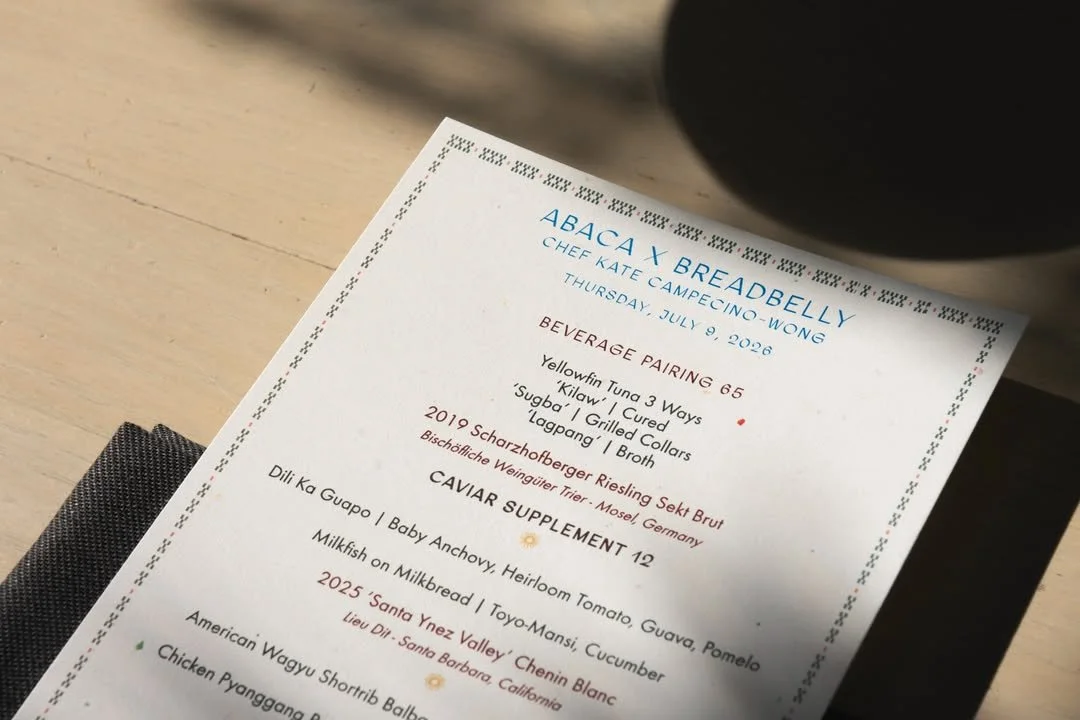 ABACA X BREADBELLY
CHEF KATE CAMPECINO-WONG
THURSDAY, JULY 9, 2026
BEVERAGE PAIRING 65
Yellowfin Tuna 3 Ways
'Kilaw' | Cured
'Sugba' | Grilled Collars
'Lagpang' | Broth
2019 Scharzhofberger Riesling Sekt Brut
Bischöfliche Weingüter Trier - Mosel, Germany
CAVIAR SUPPLEMENT 12
Dili Ka Guapo | Baby Anchovy, Heirloom Tomato, Guava, Pomelo
Milkfish on Milkbread | Toyo-Mansi, Cucumber
2025 'Santa Ynez Valley' Chenin Blanc
Lieu Dit - Santa Barbara, California
American Wagyu Shortrib
Chicken Pyanggang